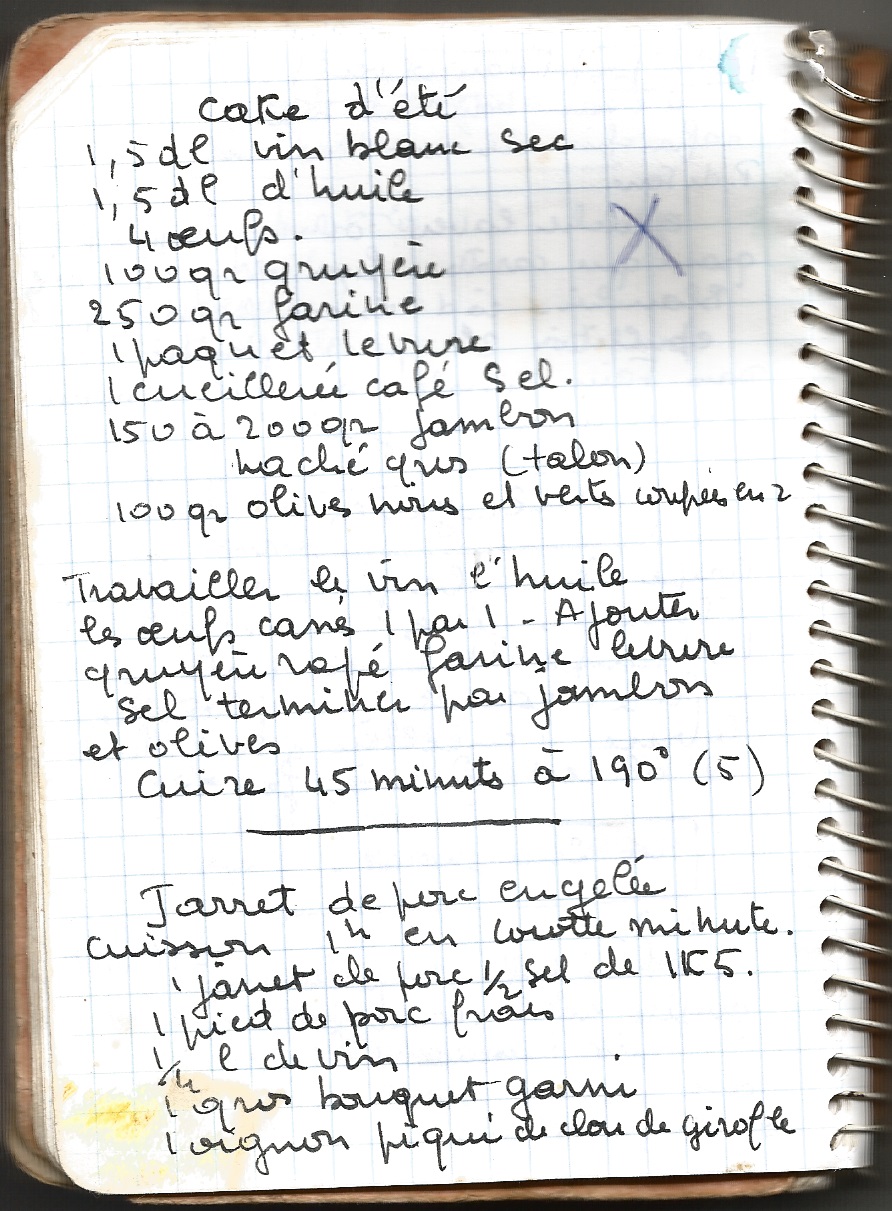 Cake d'été
1,5 dl vin blanc sec
1,5 dl d'huile
4 œufs.
100 gr gruyère
250 gr farine
1 paquet levure
1 cueillerée café Sel.
150 à 200 gr jambon
haché gros (talon)
100 gr olives noires et vertes coupées en 2
Travailler le vin l'huile
les œufs cassés 1 par 1 - Ajouter
gruyère rapé farine levure
Sel terminer par jambon
et olives
Cuire 45 minutes à 190° (5)
Jarret de porc en gelée
Cuisson 1h en cocotte minute.
1 jarret de porc 1/2 sel de 1K5.
1 pied de porc frais
1/4 l de vin
1 gros bouquet garni
1 oignon piqué de clou de girofle